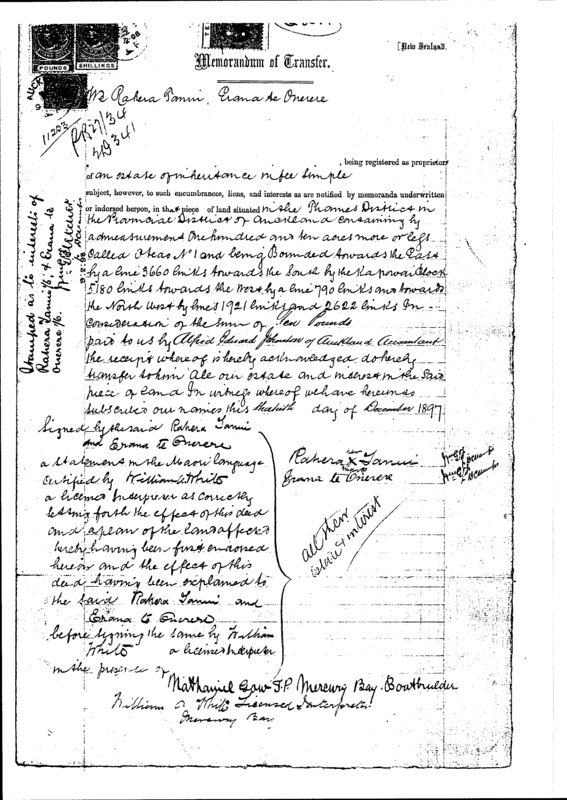 POUNDS
SHILLINGS
[New Zealand.
Memorandum of Transfer.
11203
PR 27/34
341
We Rahera Tanui, Erana te Onerere
, being registered as proprietors
of an estate of inheritance in fee simple
subject, however, to such encumbrances, liens, and interests as are notified by memoranda underwritten
or indorsed hereon, in that piece of land situated in the Thames District in
the Provincial District of Auckland containing by
admeasurement One hundred and ten acres more or less
called Oteao No 1 and being Bounded towards the East
by a line 3660 links towards the South by the Kapowai Block
5180 links towards the West by a line 790 links and towards
the North West by lines 1921 links and 2622 links In
Consideration of the sum of Ten Pounds
paid to us by Alfred Edward Johnston of Auckland Accountant
the receipt whereof is hereby acknowledged do hereby
transfer to him All our estate and interest in the said
piece of land In witness whereof we have hereunto
subscribed our names this day of December 1897
Stamped as to interests of
Rahera Tanui & Erana te
Onerere
Signed by the said Rahera Tanui
and Erana te Onerere
a Statement in the Maori language
certified by William A White
a licensed Interpreter as correctly
setting forth the effect of this deed
and a plan of the land affected
hereby having been first endorsed
hereon and the effect of this
deed having been explained to
the said Rahera Tanui and
Erana te Onerere
before signing the same by William
White a licensed Interpreter
in the presence of
Rahera X Tanui
her
mark
Erana te Onerere
all their
interest
Nathaniel Gow J.P. Mercury Bay. Boatbuilder
William A White Licensed Interpreter
Mercury Bay